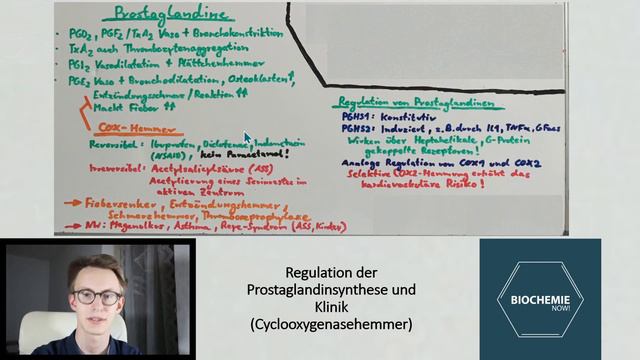 Prostaglandine
• PGD2, PGF2/TxA2 Vaso + Bronchokonstriktion
• TxA2 auch Thrombozytenaggregation
• PGI2 Vasodilatation + Plättchenhemmer
• PGE2 Vaso + Bronchodilatation, Osteoklasten↑,
Entzündungsschmerz/Reaktion ↑↑
Macht Fieber ↑↑
COX-Hemmer
Reversibel: Ibuprofen, Diclofenac, Indometacin
(NSAID), kein Paracetamol!
Irreversibel: Acetylsalicylsäure (ASS)
Acetylierung eines Serinrestes im
aktiven Zentrum
→ Fiebersenker, Entzündungshemmer,
Schmerzhemmer, Thromboseprophylaxe
→ NW: Magenulkus, Asthma, Reye-Syndrom (ASS, Kinder)
Regulation von Prostaglandinen
PGHS1: Konstitutiv
PGHS2: Induziert, z.B. durch IL1, TNFα,
Wirken über Heptahelikale, G-Protein
gekoppelte Rezeptoren!
Analoge Regulation von COX1 und COX2
Selektive COX2-Hemmung erhöht das
kardiovaskuläre Risiko!
Regulation der
Prostaglandinsynthese und
Klinik
(Cyclooxygenasehemmer)
BIOCHEMIE
NOW!